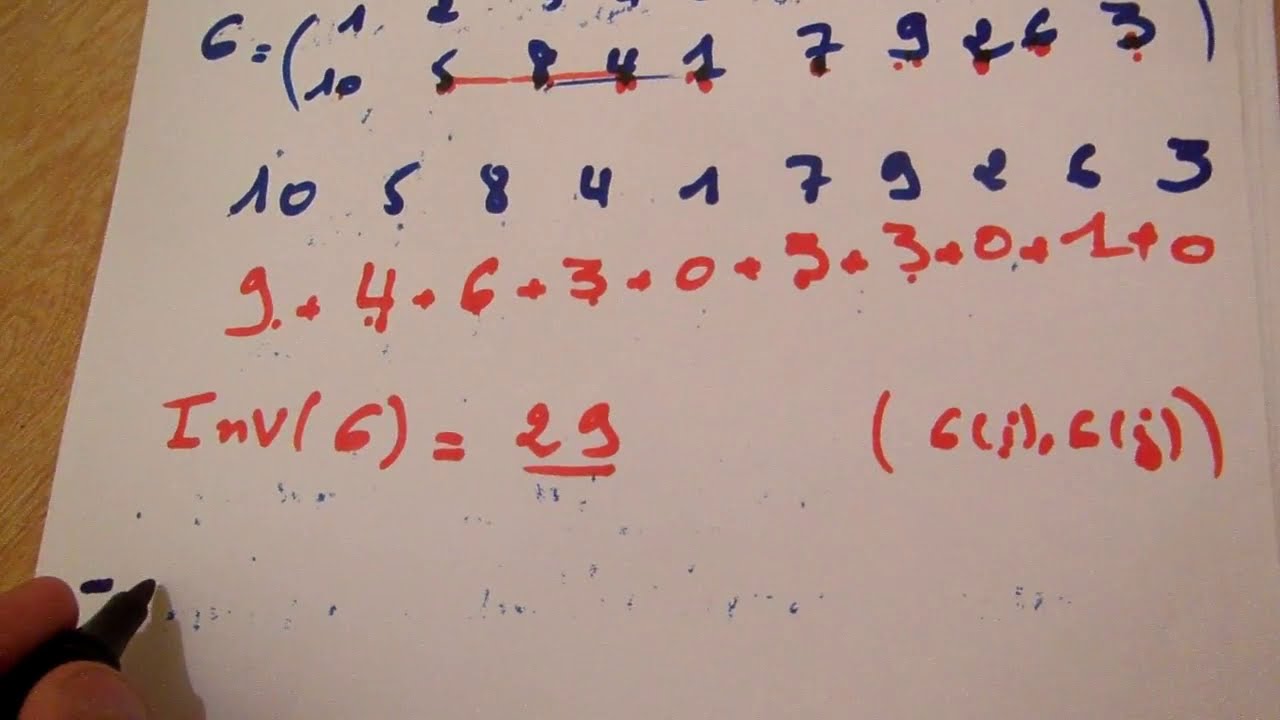 1 2
σ = ( 10 5 8 4 1 7 9 2 6 3 )
10 5 8 4 1 7 9 2 6 3
9 + 4 + 6 + 3 + 0 + 3 + 3 + 0 + 1 + 0
Inv(σ) = 29 (σ(i), σ(j))
-